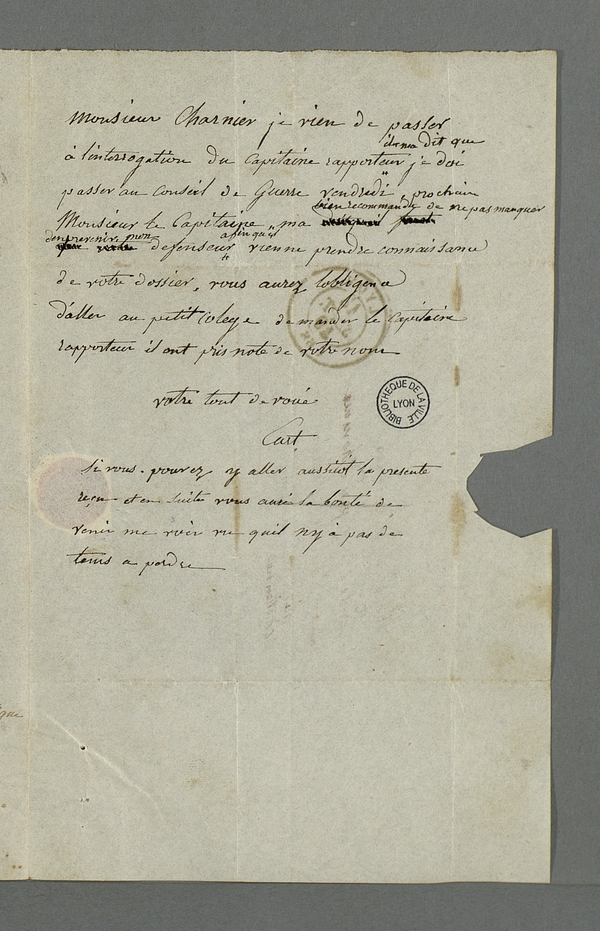 Monsieur Charnier je vien de passer
il ma dit que
à l'interrogation du Capitaine rapporteur je doi
passer au Conseil de Guerre vendredi prochain
bien recommandé de ne pas manquer
Monsieur le Capitaine ma
den prevenir mon afin quil
defenseur vienne prendre connaissance
de votre dossier, vous aurez lobligence
d'aller au petit Colege demander le Capitaine
rapporteur il ont pris note de votre nom
votre tout de voué
Cart
Si vous pouvez y aller aussitot la presente
reçu et en suite vous auré la bonté de
venir me voir vu quil ny à pas de
tems a perdre
BIBLIOTHEQUE DE LA VILLE
LYON